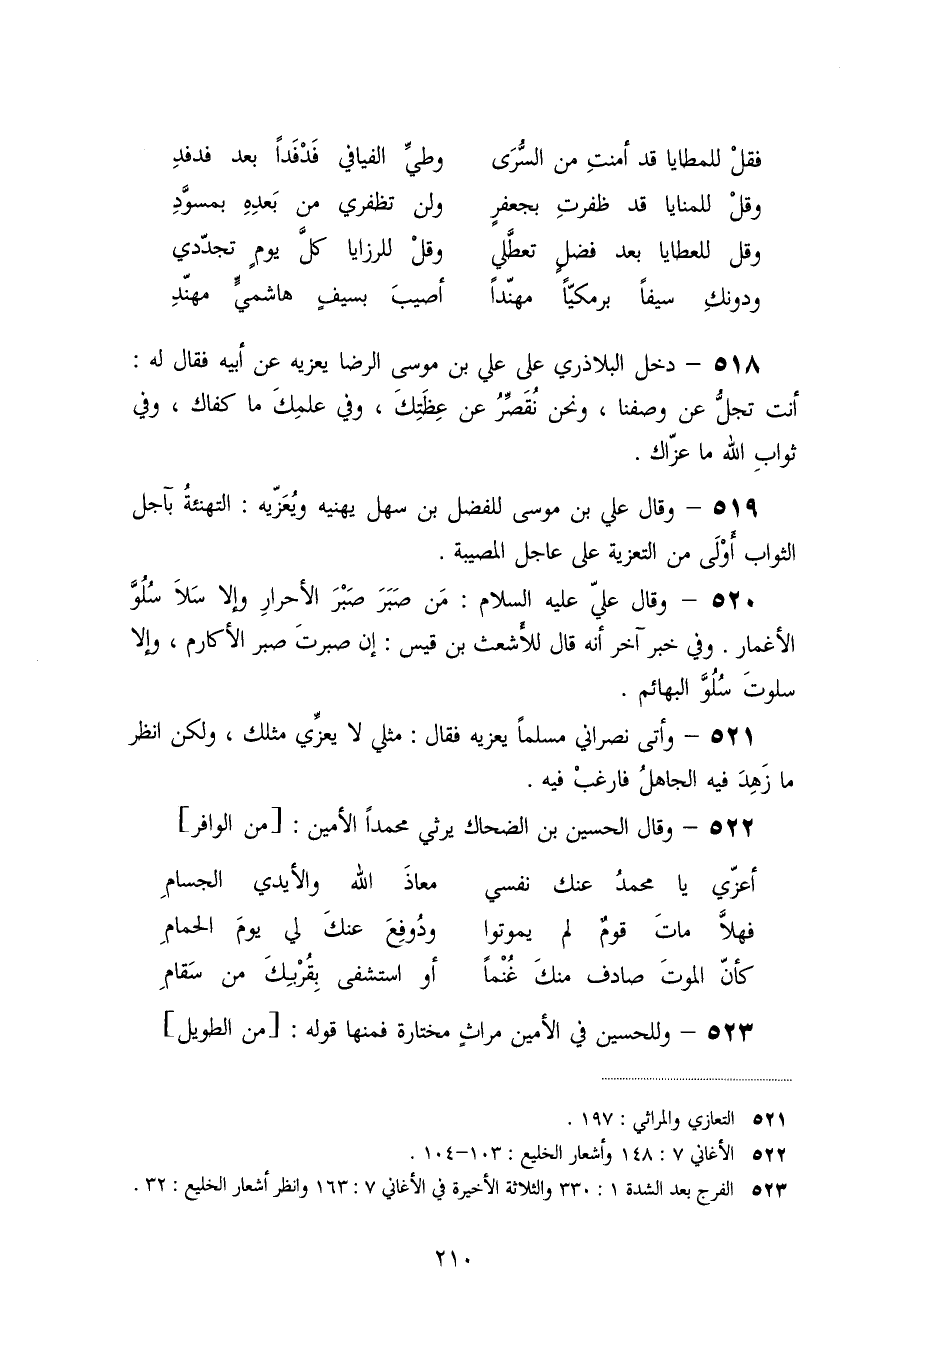 فقلْ للمطايا قد أمنتِ من السُّرَى وطيِّ الفيافي فَدْفَداً بعد فدفدِ
وقلْ للمنايا قد ظفرتِ بجعفرٍ ولن تظفري من بَعدِهِ بمسوَّدِ
وقل للعطايا بعد فضلٍ تعطَّلي وقلْ للرزايا كلَّ يومٍ تجدّدي
ودونكِ سيفاً برمكيّاً مهنّداً أصيبَ بسيفٍ هاشميٍّ مهنّدِ
٥١٨ – دخل البلاذري على علي بن موسى الرضا يعزيه عن أبيه فقال له :
أنت تجلُّ عن وصفنا ، ونحن نُقَصِّرُ عن عِظَتِكَ ، وفي علمِكَ ما كفاك ، وفي
ثوابِ الله ما عزّاك .
٥١٩ – وقال علي بن موسى للفضل بن سهل يهنيه ويُعَزّيه : التهنئةُ بآجل
الثواب أَوْلَى من التعزية على عاجل المصيبة .
٥٢٠ – وقال عليّ عليه السلام : مَن صَبَرَ صَبْرَ الأحرارِ وإلا سَلاَ سُلُوَّ
الأغمار . وفي خبر آخر أنه قال للأشعث بن قيس : إن صبرتَ صبر الأكارم ، وإلا
سلوتَ سُلُوَّ البهائم .
٥٢١ – وأتى نصراني مسلماً يعزيه فقال : مثلي لا يعزِّي مثلك ، ولكن انظر
ما زَهِدَ فيه الجاهلُ فارغبْ فيه .
٥٢٢ – وقال الحسين بن الضحاك يرثي محمداً الأمين : [من الوافر]
أعزّي يا محمدُ عنك نفسي معاذَ الله والأيدي الجسامِ
فهلاَّ ماتَ قومٌ لم يموتوا ودُوفِعَ عنكَ لي يومَ الحمامِ
كأنّ الموتَ صادف منكَ غُنْماً أو استشفى بِقُرْبِكَ من سَقامِ
٥٢٣ – وللحسين في الأمين مراثٍ مختارة فمنها قوله : [من الطويل]
٥٢١ التعازي والمراثي : ١٩٧ .
٥٢٢ الأغاني ٧ : ١٤٨ وأشعار الخليع : ١٠٣–١٠٤ .
٥٢٣ الفرج بعد الشدة ١ : ٣٣٠ والثلاثة الأخيرة في الأغاني ٧ : ١٦٣ وانظر أشعار الخليع : ٣٢ .
٢١٠